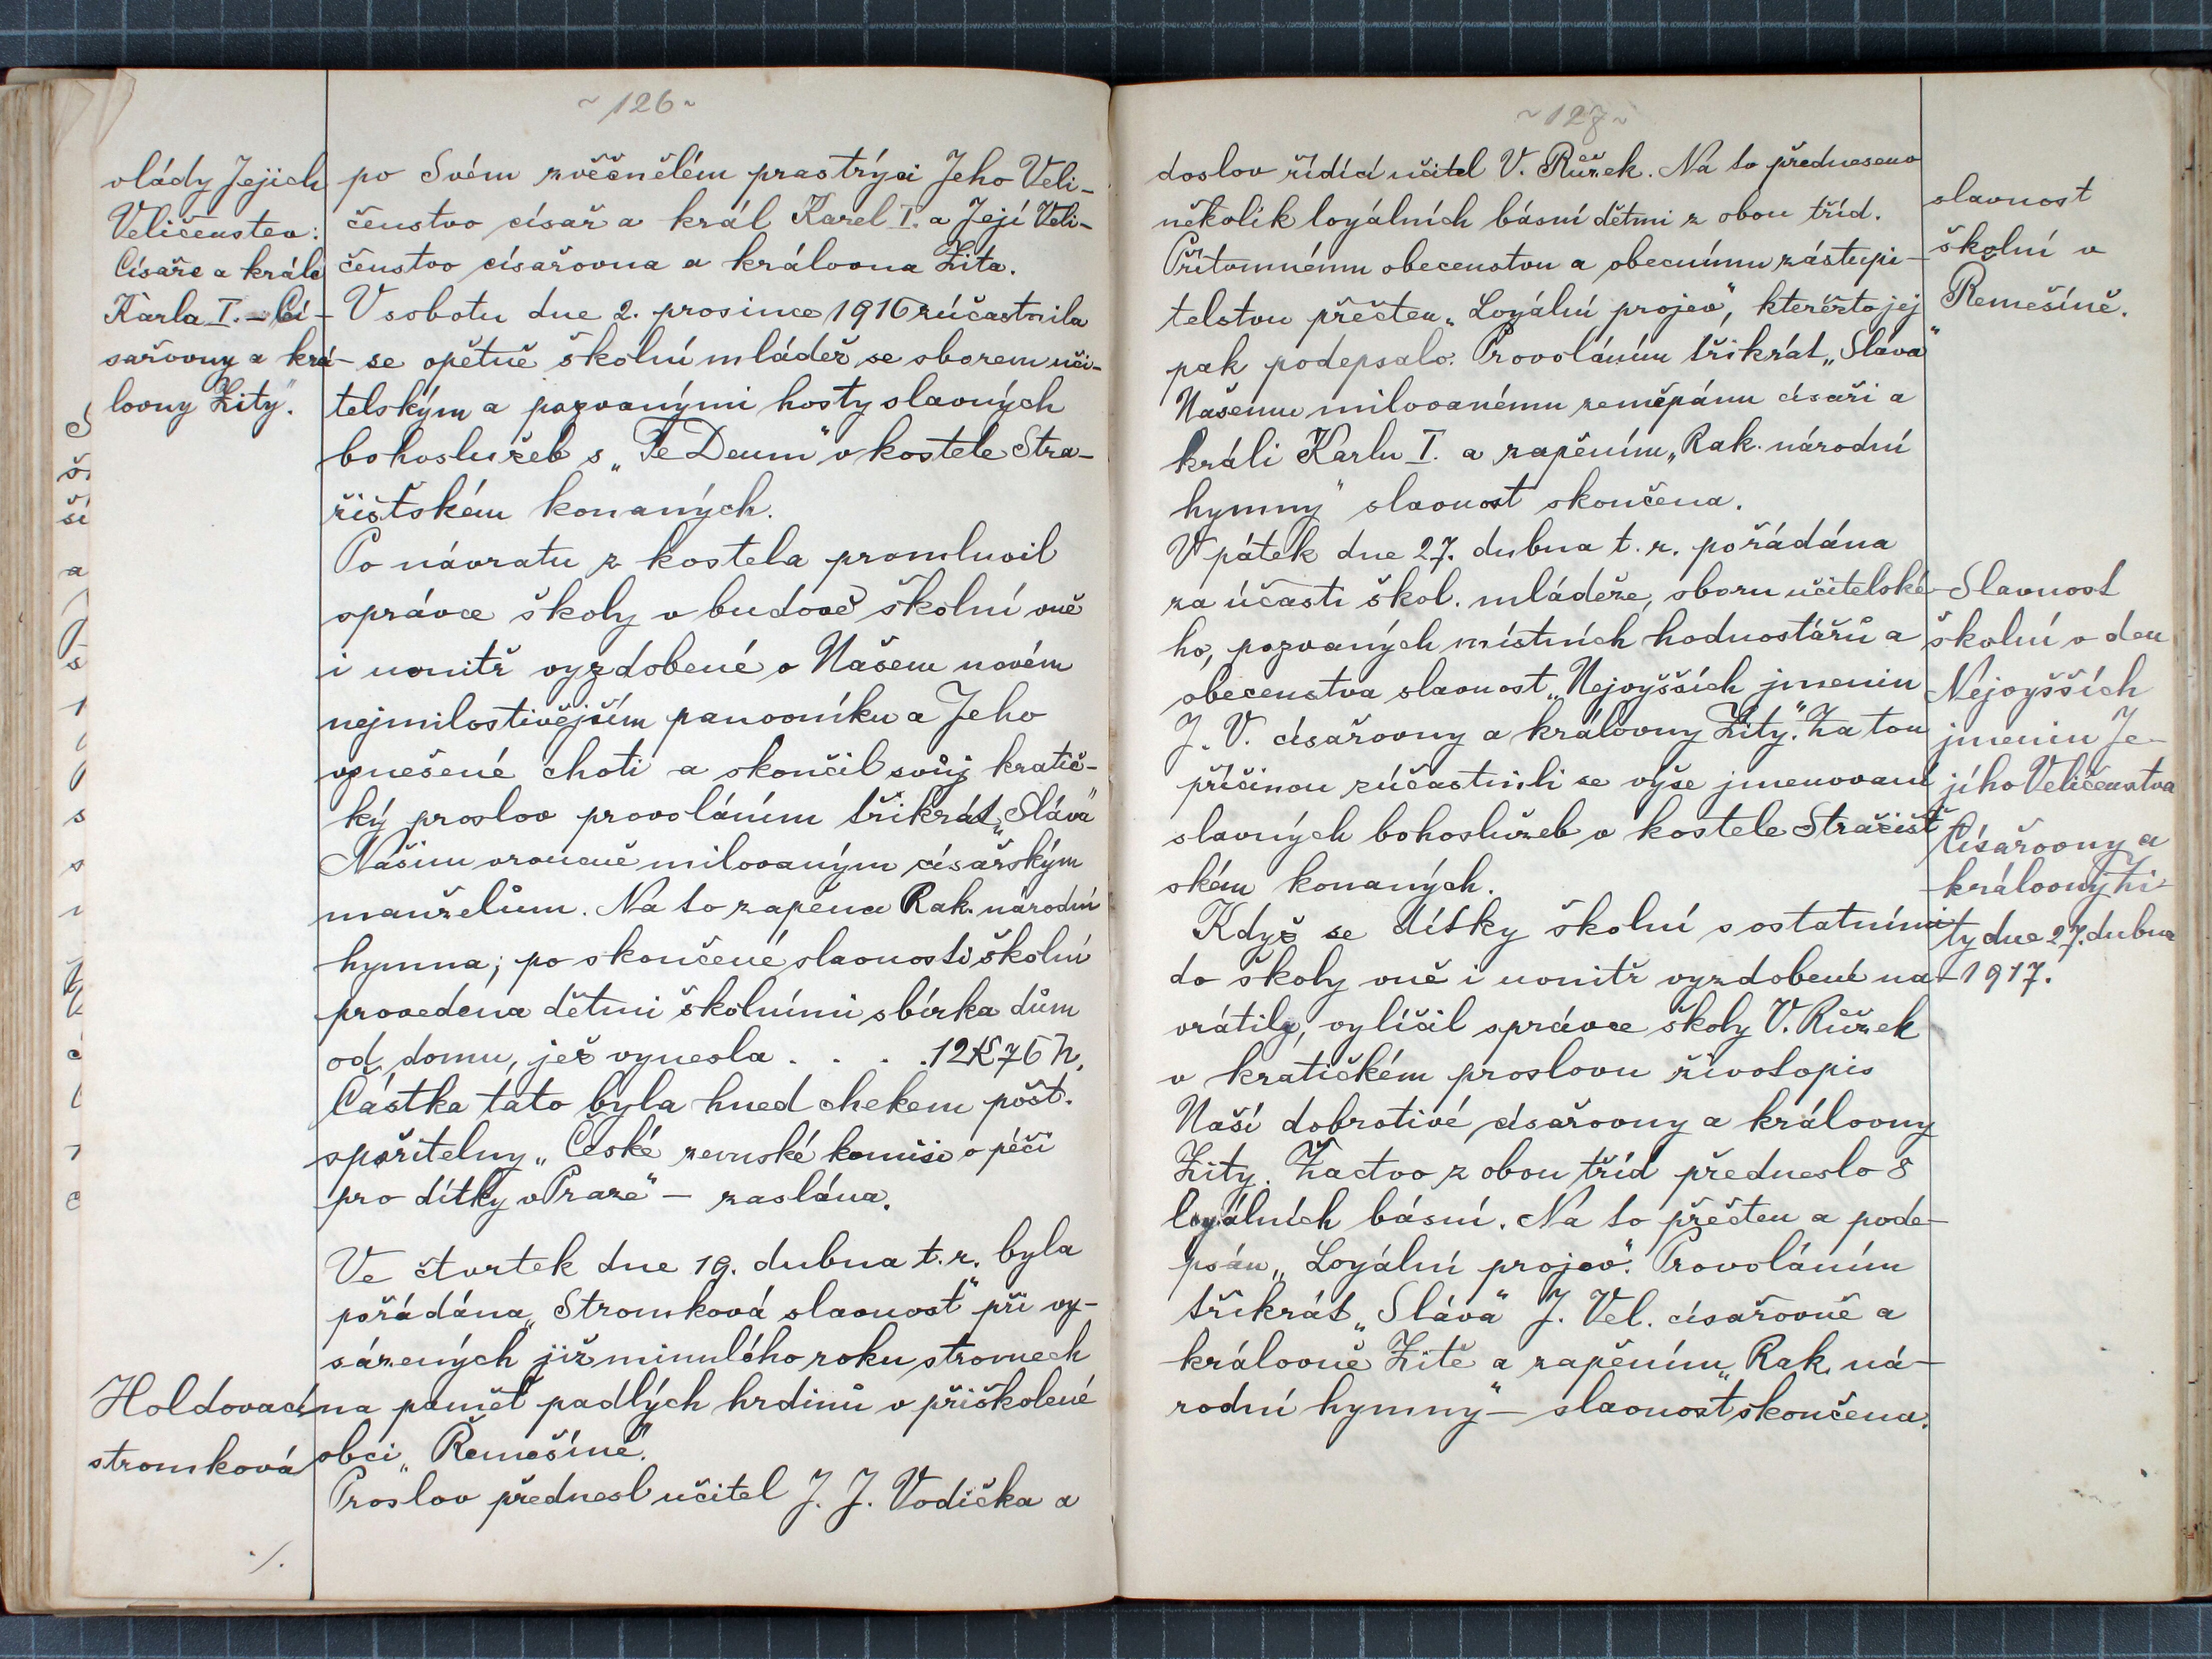 ~ 126 ~
vlády Jejich
Veličenstev:
Císaře a krále
Karla I. – Cí-
sařovny a krá-
lovny Zity".
po Svém zvěčnělém prastrýci Jeho Veli-
čenstvo císař a král Karel I. a Její Veli-
čenstvo císařovna a královna Zita.
V sobotu dne 2. prosince 1916 zúčastnila
se opětně školní mládež se sborem uči-
telským a pozvanými hosty slavných
bohoslužeb s „Te Deum" v kostele Stra-
žištském konaných.
Po návratu z kostela promluvil
správce školy v budově školní vně
i uvnitř vyzdobené o Našem novém
nejmilostivějším panovníku a Jeho
vznešené choti a skončil svůj kratič-
ký proslov provoláním třikrát „Sláva"
Našim vroucně milovaným císařským
manželům. Na to zapěna Rak. národní
hymna; po skončené slavnosti školní
provedena dětmi školními sbírka dům
od domu, jež vynesla . . . . 12 K 76 h.
Částka tato byla hned chekem pošt.
spořitelny „České zemské komisi o péči
pro dítky v Praze" – zaslána.
Ve čtvrtek dne 19. dubna t. r. byla
pořádána „Stromková slavnost" při vy-
sázených již minulého roku stromech
na paměť padlých hrdinů v přiškolené
obci „Řemešíně".
Proslov přednesl učitel J. J. Vodička a
Holdovací
stromková
./.
~ 127 ~
doslov řídící učitel V. Růžek. Na to předneseno
několik loyálních básní dětmi z obou tříd.
Přítomnému obecenstvu a obecnímu zástupi-
telstvu přečten „Loyální projev", kteréžto jej
pak podepsalo. Provoláním třikrát „Sláva"
Našemu milovanému zeměpánu císaři a
králi Karlu I. a zapěním „Rak. národní
hymny" slavnost skončena.
V pátek dne 27. dubna t. r. pořádána
za účasti škol. mládeže, sboru učitelské-
ho, pozvaných místních hodnostářů a
obecenstva slavnost „Nejvyšších jmenin
J. V. císařovny a královny Zity". Za tou
příčinou zúčastnili se výše jmenovaní
slavných bohoslužeb v kostele Stražišt-
ském konaných.
Když se dítky školní s ostatními
do školy vně i uvnitř vyzdobené na-
vrátily, vylíčil správce školy V. Růžek
v kratičkém proslovu životopis
Naší dobrotivé císařovny a královny
Zity. Žactvo z obou tříd předneslo 8
loyálních básní. Na to přečten a pode-
psán „Loyální projev". Provoláním
třikrát „Sláva" J. Vel. císařovně a
královně Zitě a zapěním „Rak. ná-
rodní hymny" – slavnost skončena.
slavnost
školní v
Řemešíně.
Slavnost
školní v den
Nejvyšších
jmenin Je-
jího Veličenstva
Císařovny a
královny Zi-
ty dne 27. dubna
1917.